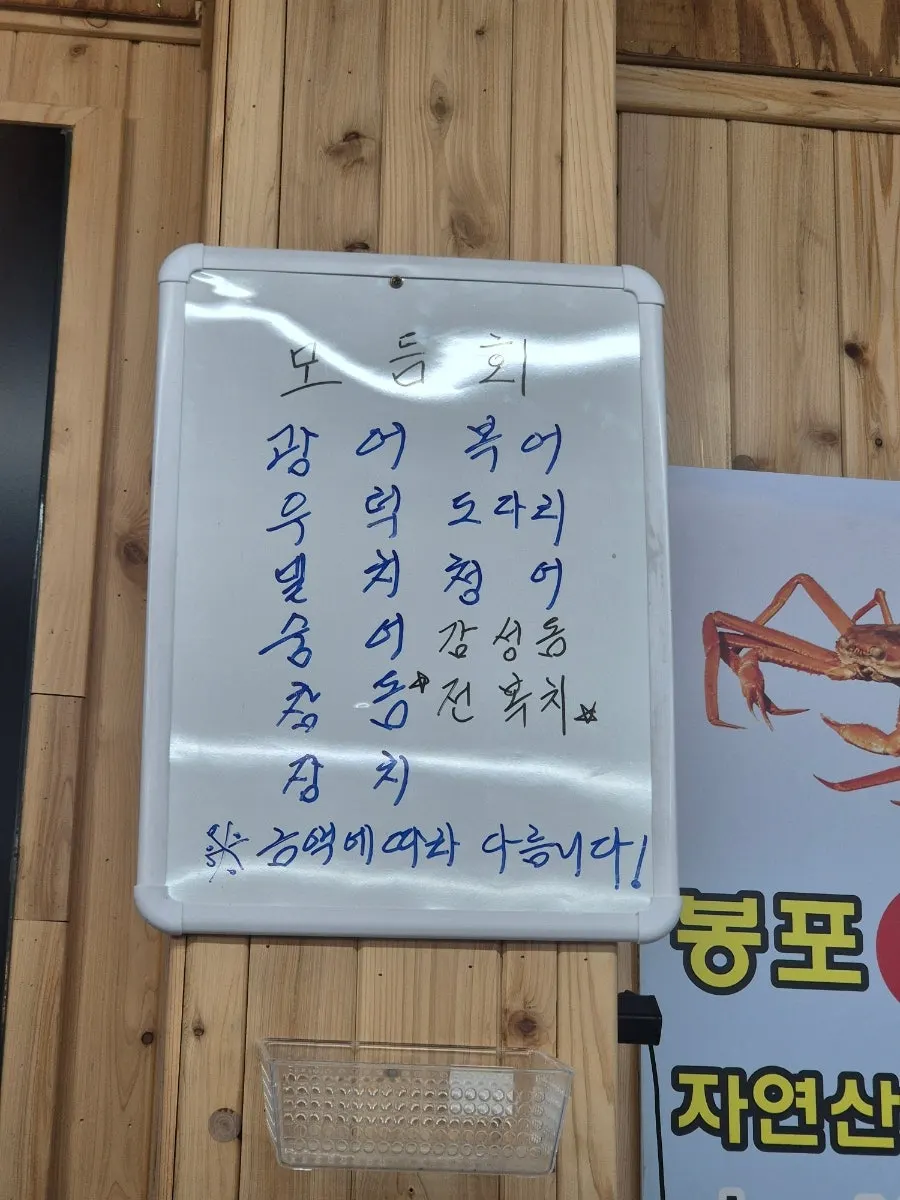 모듬회
광어 복어
우럭 도다리
밀치 청어
숭어 감성돔
참돔☆ 전복치☆
장치
※ 금액에따라 다릅니다!
봉포
자연산